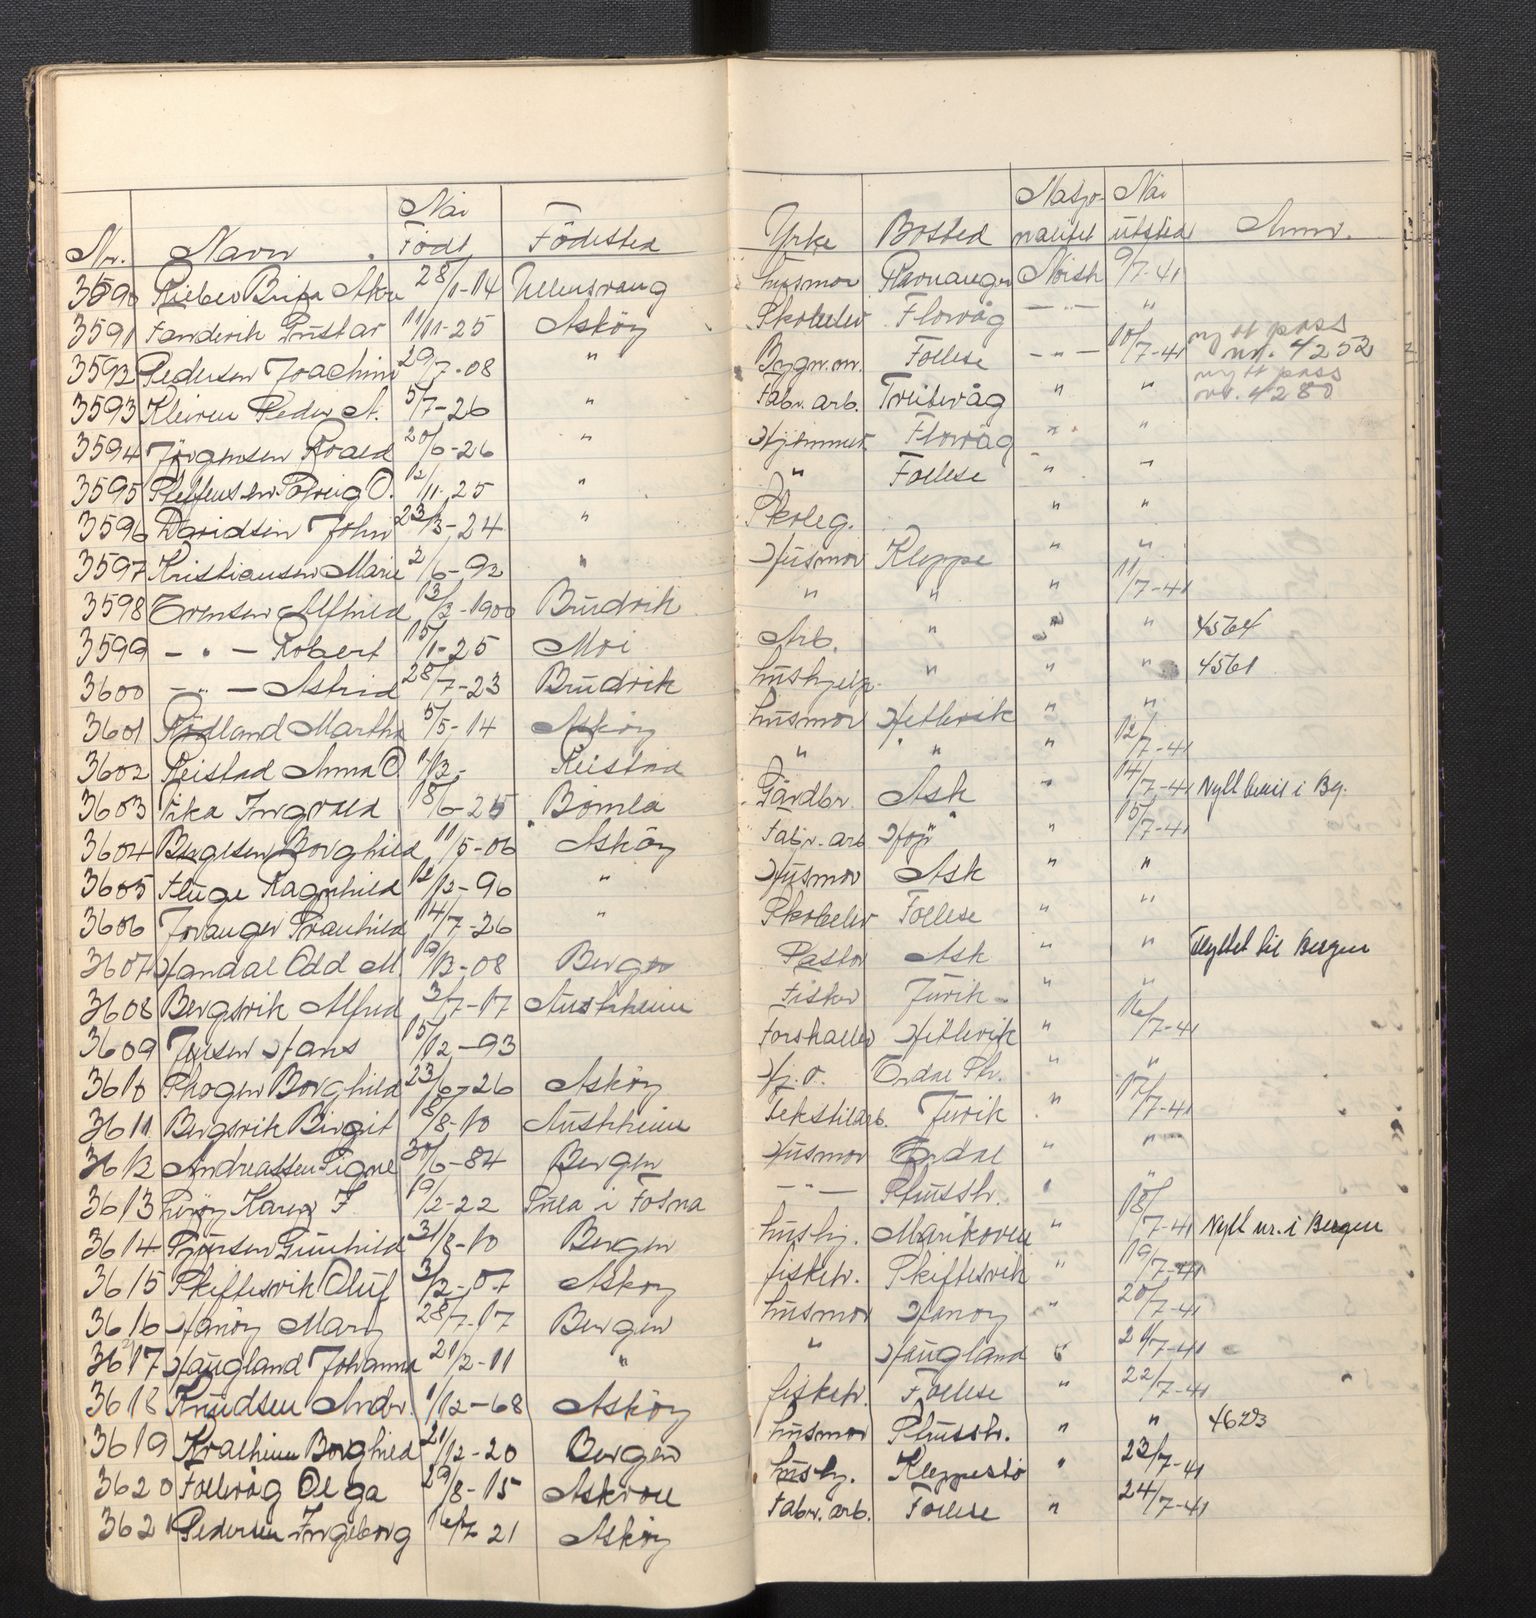 Når Natjo- Når
Nr. Navn Född Födested Yrke Bosted nalitet utsted Anm.
3590 Rieber Brita 28/1-14 Ullensvang husmor Norsk 9/7-41
3591 Gustav 11/11-25 Asköy Skoleelev Florvåg — " — "
3592 Pedersen Joachim 29/7-08 " Bygn.m. Follese — " — 10/7-41 nytt pass nr. 4252
3593 Kleiven Peder A. 5/7-26 " Fabr. arb. " " nytt pass nr. 4280
3594 Jörgensen Roald 20/6-26 " Hjemmev. Florvåg " "
3595 Steffensen Solveig O. 12/11-25 " " Follese " "
3596 Davidsen John 23/3-24 " Skoleg. " "
3597 Kristiansen Marie 2/6-92 " Husmor Kleppe " "
3598 Evensen Alfhild 13/3-1900 " " " 11/7-41
3599 — " — Robert 15/1-25 Moi Arb. " " " 4564
3600 — " — Astrid 28/7-23 hushjelp " " " 4561
3601 Rödland Martha 5/5-14 Asköy husmor Hetlevik " "
3602 Reistad Anna O Reistad " " " 12/7-41
3603 Vika Ingvald 18/6-25 Bömlo Gårdbr. Ask " 14/7-41 Nytt bevis i Bg.
3604 Bergesen Borghild 11/5-06 Asköy Fabr. arb. Hop " 15/7-41
3605 Fluge Ragnhild 12/12-96 " Husmor Ask " "
3606 Svanhild 14/7-26 " Skoleelev Follese " "
3607 Handal Odd M. 19/12-08 Bergen Pastor Ask " " Flyttet til Bergen
3608 Bergsvik Alfred 3/7-17 Austrheim Fisker Juvik " "
3609 Jensen Hans 15/12-93 Forskaller Hetlevik " 16/7-41
3610 Skogen Borghild 23/6-26 Asköy Hj. v. Erdal Sk. " "
3611 Bergsvik Birgit 18/8-10 Austrheim Tekstilarb. Juvik " 17/7-41
3612 Andreassen Signe 30/6-84 Bergen Husmor Erdal " "
3613 Karen F. 19/2-22 i Fosna — " — Strusshv. " "
3614 Gunhild 31/8-10 Bergen hushj. Marikoven " 18/7-41 Nytt nr. i Bergen
3615 Skiftesvik Oluf 3/2-07 Asköy fiskebr. Skiftesvik " 19/7-41
3616 Hanöy Mary 28/7-17 Bergen husmor Hanöy " 20/7-41
3617 Haugland Johanna 21/2-11 " " Haugland " 21/7-41
3618 Knudsen Andr. 1/12-68 Asköy fiskebr. Follese " 22/7-41
3619 Kralheim Borghild 21/12-20 Bergen husmor Strusshv. " " 4623
3620 Follevåg Olga 29/8-15 Askvoll hushj. Kleppestö " 23/7-41
3621 Pedersen Ingeborg 16/7 21 Asköy Fabr. arb. Follese " 24/7-41